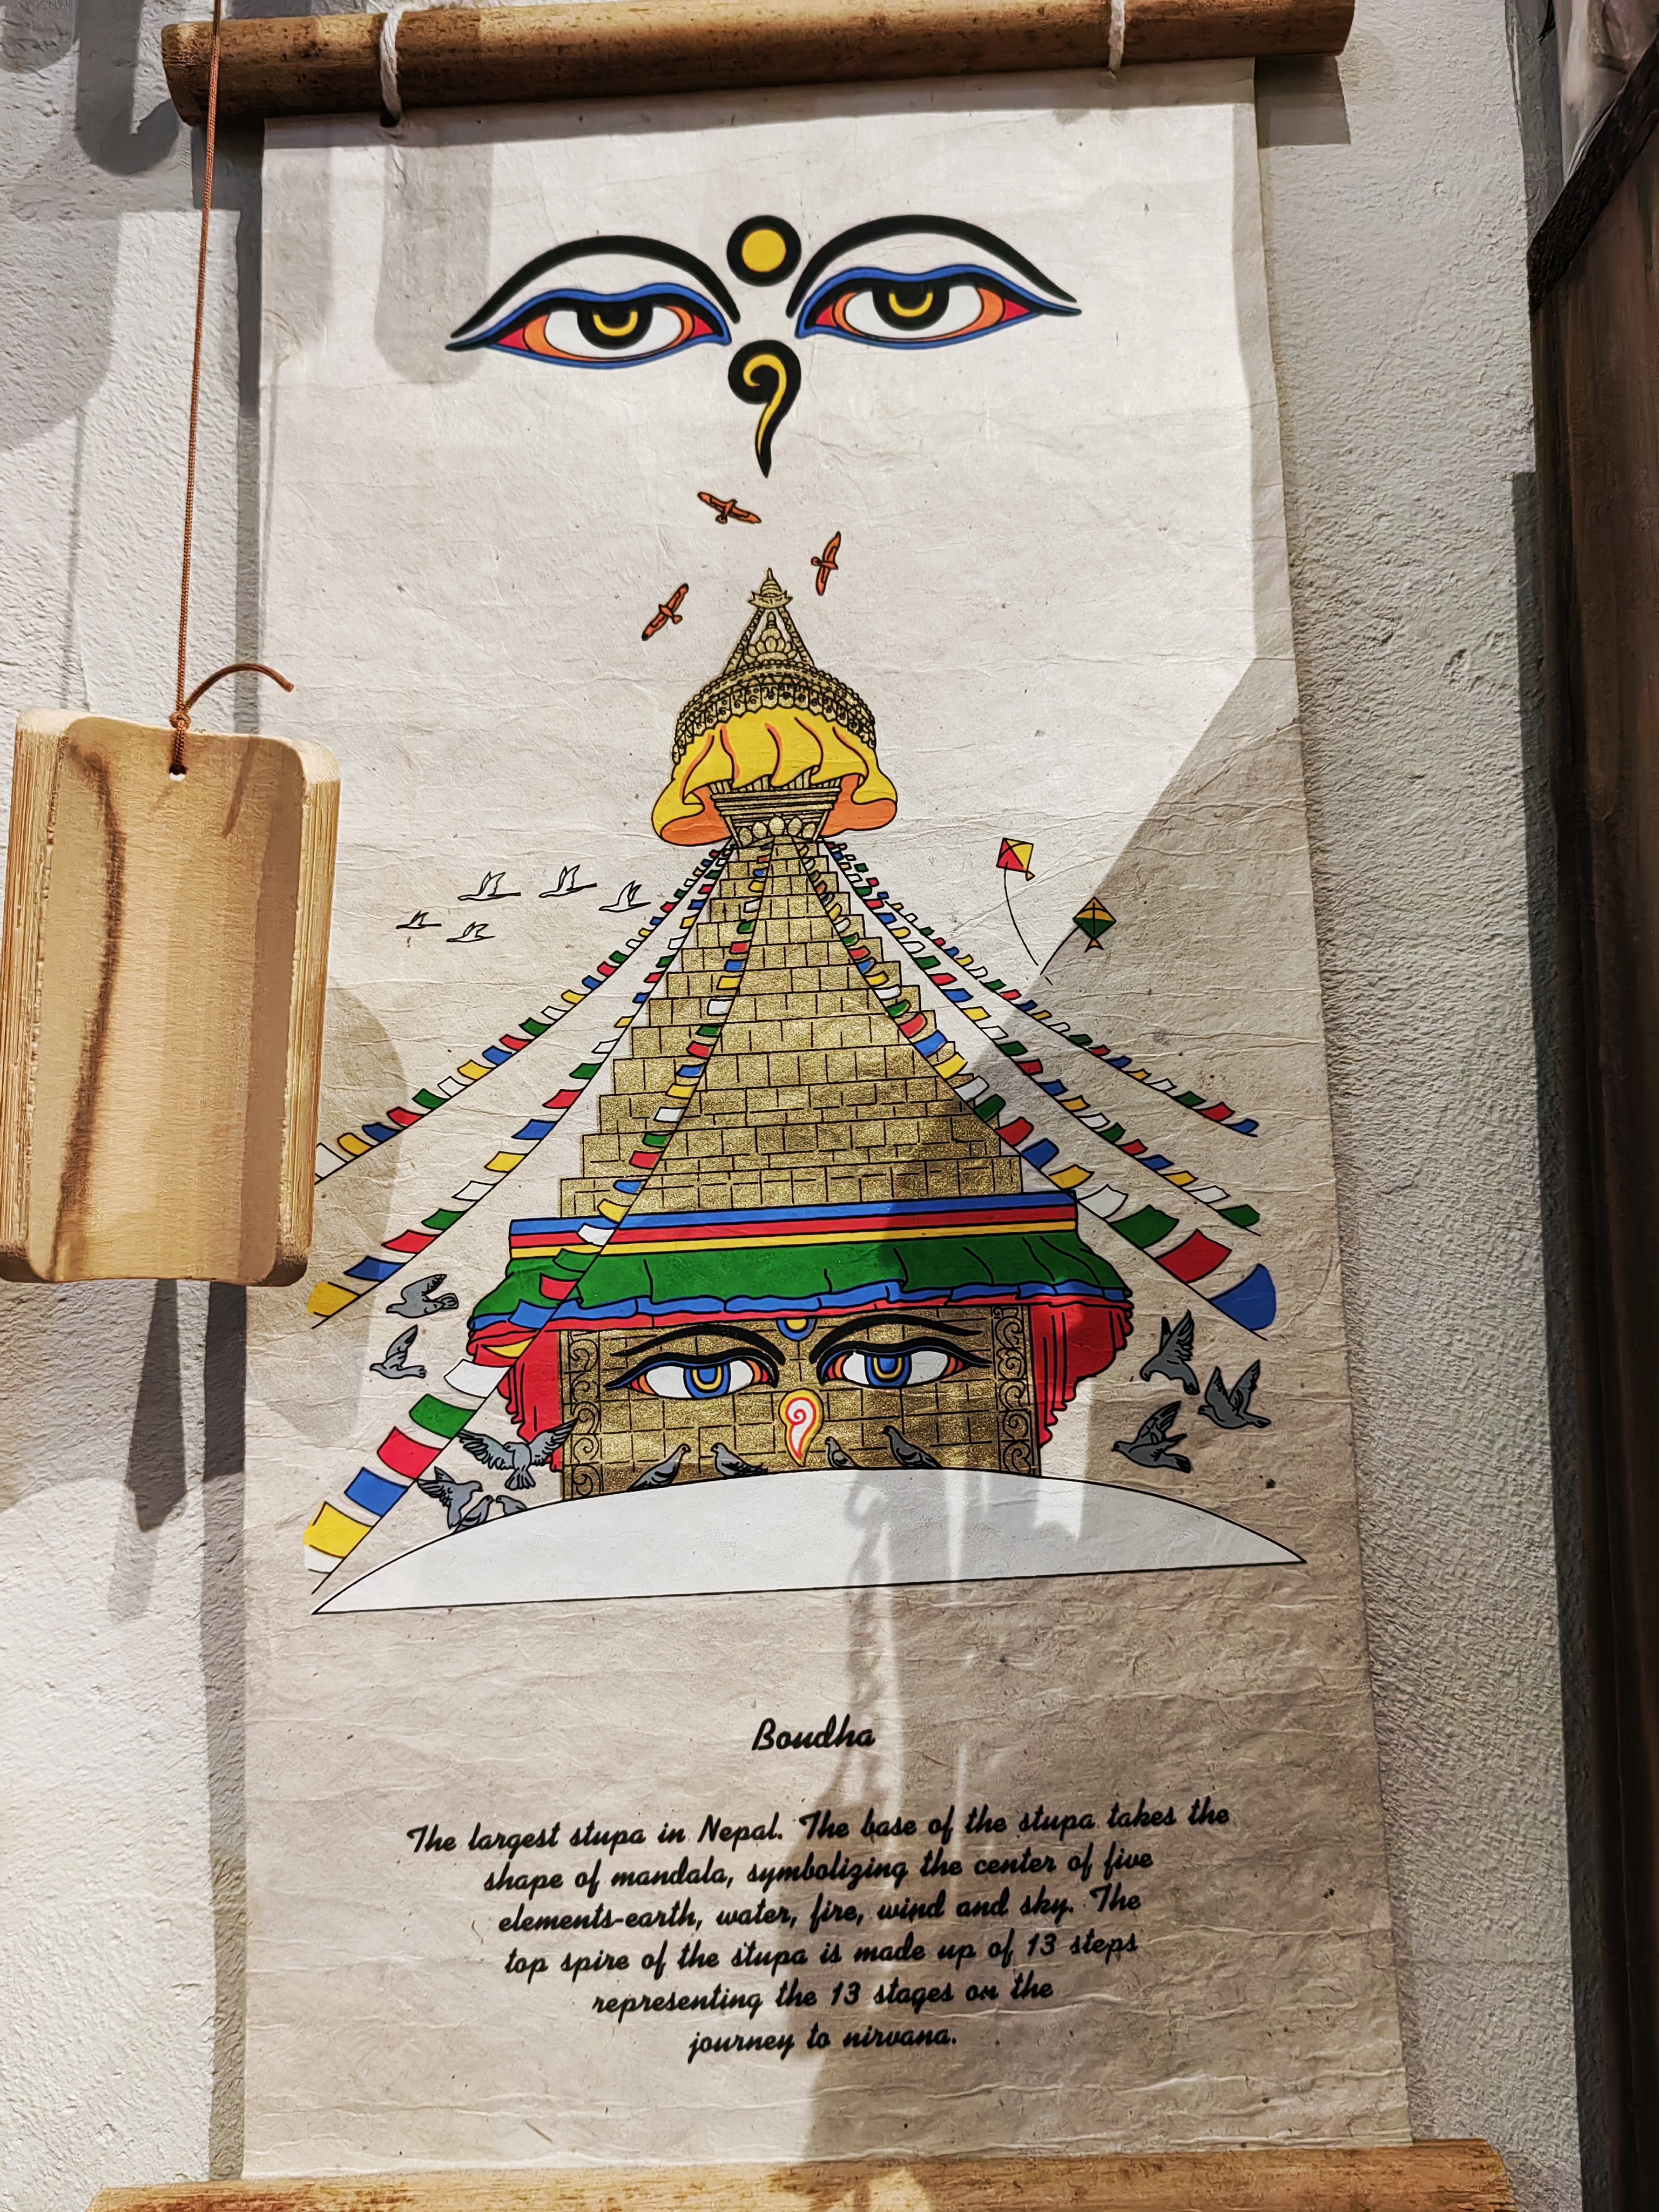 Boudha
The largest stupa in Nepal. The base of the stupa takes the
shape of mandala, symbolizing the center of five
elements-earth, water, fire, wind and sky. The
top spire of the stupa is made up of 13 steps
representing the 13 stages on the
journey to nirvana.